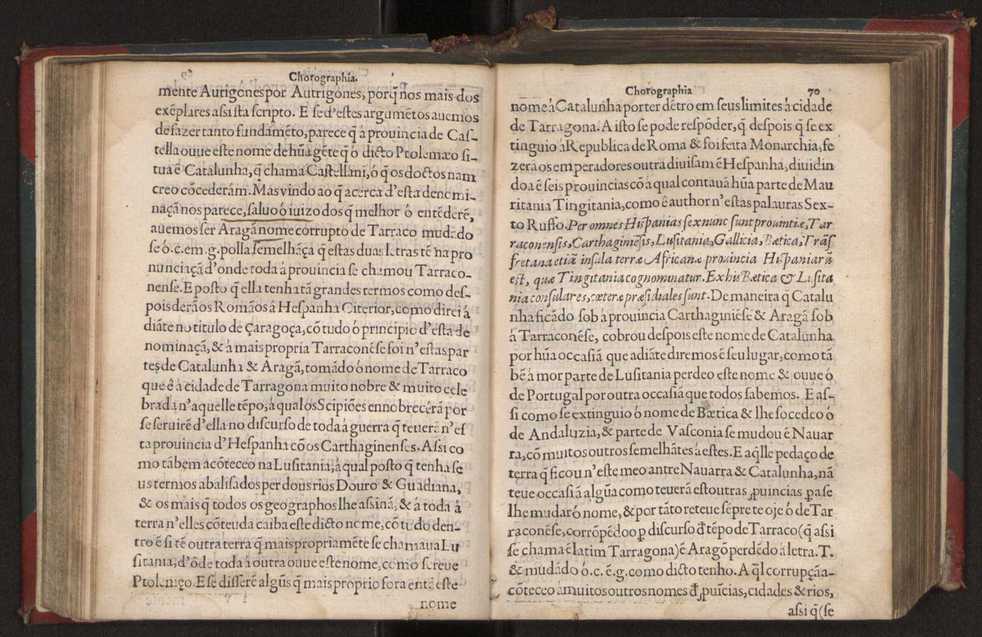 Chorographia.
mente Autrigones por Autrigones, porq̃ nos mais dos
exẽplares assi sta scripto. E se d'estes argumẽtos auemos
de fazer tanto fundamẽto, parece q̃ à prouincia de Cas-
tella ouue este nome de hũa gẽte q̃ ô dicto Ptolemæo si-
tua ẽ Catalunha, q̃ chama Castellani, ò q̃ os doctos nam
creo cõcederám. Mas vindo ao q̃ acerca d'esta denomi-
naçã nos parece, saluo ô iuizo dos q̃ melhor ô entẽderẽ,
auemos ser Aragã nome corrupto de Tarraco mudado
se ô .c. em .g. polla semelhãça q̃ estas duas letras tẽ na pro
nunciaçã d'onde toda â prouincia se chamou Tarraco-
nense. E posto q̃ ella tenha tã grandes termos como des-
pois derão os Romãos â Hespanha Citerior, como direi â
diãte no titulo de Çaragoça, cõ tudo ô principio d'esta de
nominaçã, & â mais propria Tarraconẽse foi n'estas par
tes de Catalunha & Aragã, tomãdo ô nome de Tarraco
que ê â cidade de Tarragona muito nobre & muito cele
brada n'aquelle tẽpo, â qual os Scipiões ennobrecêrã por
se seruirẽ d'ella no discurso de toda â guerra q̃ teuerã n'es
ta prouincia d'Hespanha cõ os Carthaginenses. Assi co
mo tãbem acõteceo na Lusitania, â qual posto q̃ tenha se
us termos abalisados per dous rios Douro & Guadiana,
& os mais q̃ todos os geographos lhe assinã, & â toda â
terra n'elles cõteuda caiba este dicto nome, cõ tudo den-
tro ẽ si tẽ outra terra q̃ mais propriamẽte se chamaua Lu
sitania, d'õde toda â outra ouue este nome, como screue
Ptolemæo. E se disserẽ algũs q̃ mais proprio fora entã este
nome
Chorographia
70
nome â Catalunha por ter dẽtro em seus limites â cidade
de Tarragona. A isto se pode respõder, q̃ despois q̃ se ex
tinguio â Republica de Roma & foi feita Monarchia, fe
zerã os emperadores outra diuisam ẽ Hespanha, diuidin
do a ẽ seis prouincias cõ a qual contauã hũa parte de Mau
ritania Tingitania, como ê author n'estas palauras Sex-
to Ruffo. Per omnes Hispanias sex nunc sunt prouintiæ, Tar
raconensis, Carthaginẽsis, Lusitania, Gallicia, Bætica, Trãs
fretana etiã insula terræ Africanæ prouincia Hispaniarũ
est, quæ Tingitania cognominatur. Ex his Bætica & Lusita
nia consulares, cæteræ præsidiales sunt. De maneira q̃ Catalu
nha ficãdo sob â prouincia Carthaginẽse & Aragã sob
â Tarraconẽse, cobrou despois este nome de Catalunha
por hũa occasiã que adiãte diremos ẽ seu lugar, como tã
bẽ â mor parte de Lusitania perdeo este nome & ouue ô
de Portugal por outra occasiã que todos sabemos. E as-
si como se extinguio ô nome de Bætica & lhe socedeo ô
de Andaluzia, & parte de Vasconia se mudou ẽ Nauar
ra, cõ muitos outros semelhãtes â estes. E aq̃lle pedaço de
terra q̃ ficou n'este meo antre Nauarra & Catalunha, nã
teue occasiã algũa como teuerã estoutras ꝓuincias ꝑa se
lhe mudar ô nome, & por tãto reteue sẽpre te oje ô de Tar
raconẽse, corrõpẽdo o ꝑ discurso đ tẽpo de Tarraco (q̃ assi
se chama ẽ latim Tarragona) ẽ Aragõ perdẽdo â letra .T.
& mudãdo ô .c. ẽ .g. como dicto tenho. A q̃l corrupçã a-
cõteceo â muitos outros nomes đ ꝓuĩcias, cidades & rios,
assi q̃ (se